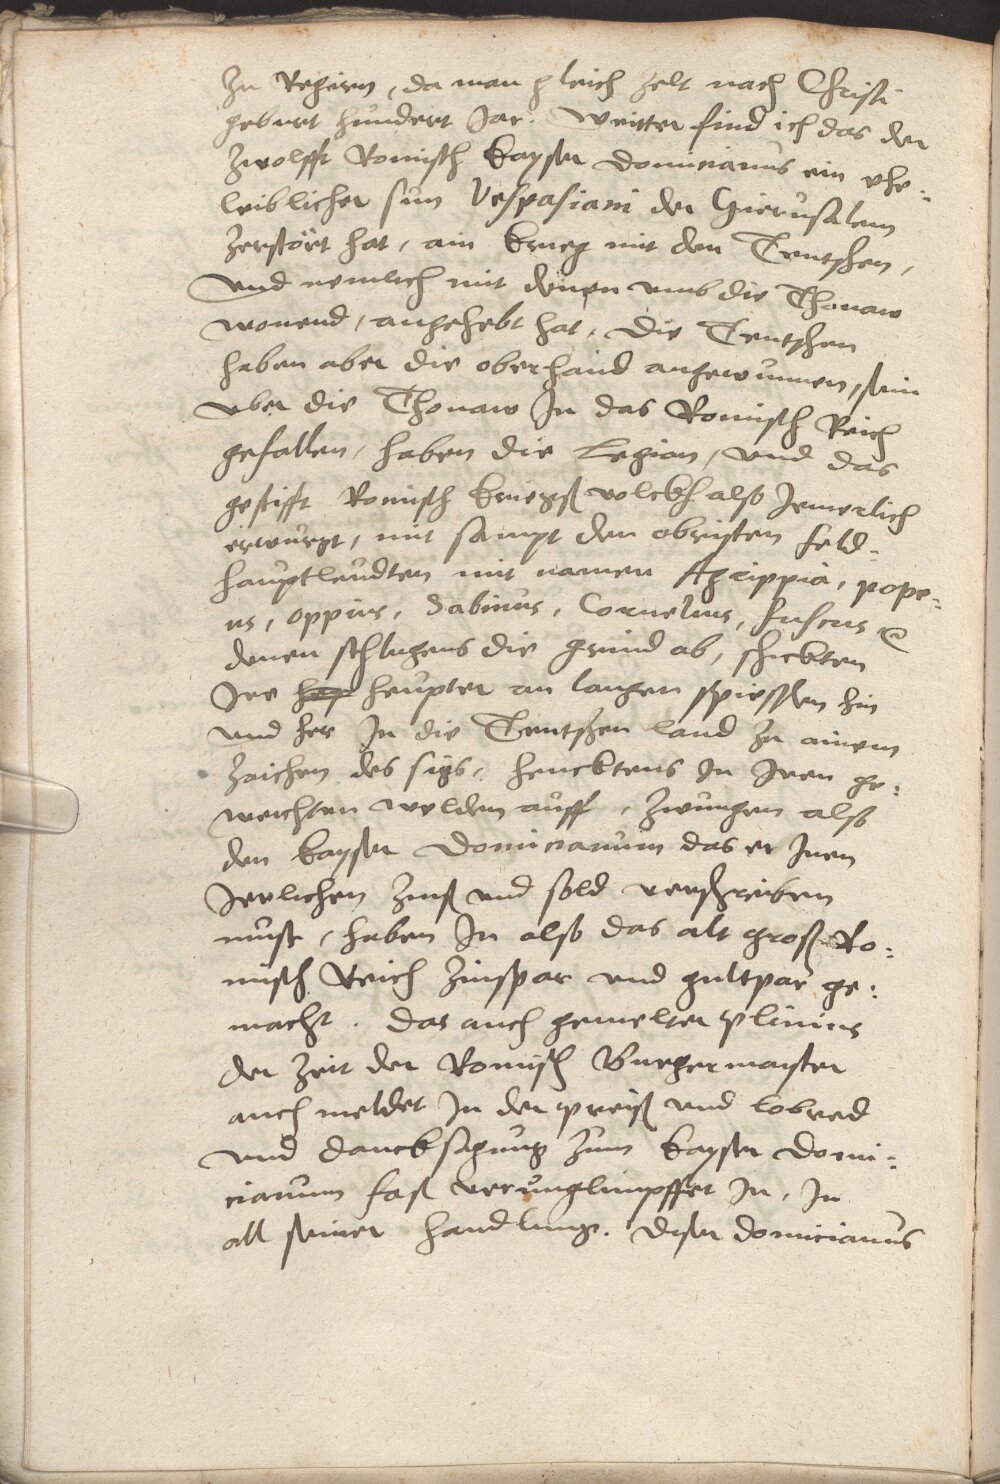 Zu Regirn, da man gleich zelt nach Christi
geburt hundert Jar. Weitter find ich das der
zwolfft Romisch kayser Domicianus ein ehe-
leiblicher sun Vespasiani der Hierusalem
zerstört hat, ain krieg mit den Teutschen,
und nemlich mit denen umb die Thonaw
wonend, angehebt hat, die Teutschen
haben aber die oberhand angewunnen, sein
uber die Thonaw In das Romisch Reich
gefallen, haben die Legion, und das
gestifft Romisch kriegß volckh also Jemerlich
erwurgt, mit sampt den obristen feld-
hauptleudten mit namen Agrippia, pope-
us, oppius, Sabinus, Cornelius, fuscus &
denen schlugens die grind ab, schickten
Ire heupter an langen spiessen hin
und her In die Teutschen land zu ainem
zaichen des sigs, hencktens In Iren ge-
weichten welden auff, zwungen also
den kayser Domicianum das er Inen
Jerlichen zinß und sold verschreiben
must, haben In also das alt groß Ro-
misch Reich zinspar und gultpar ge-
macht. das auch gemelter plinius
der zeit der Romisch Burgermayster
auch meldet In der preiß und lobred
und dancksagung zum kayser Domi-
cianum fast verunglimpffet In, In
all seiner handlung. diser domicianus